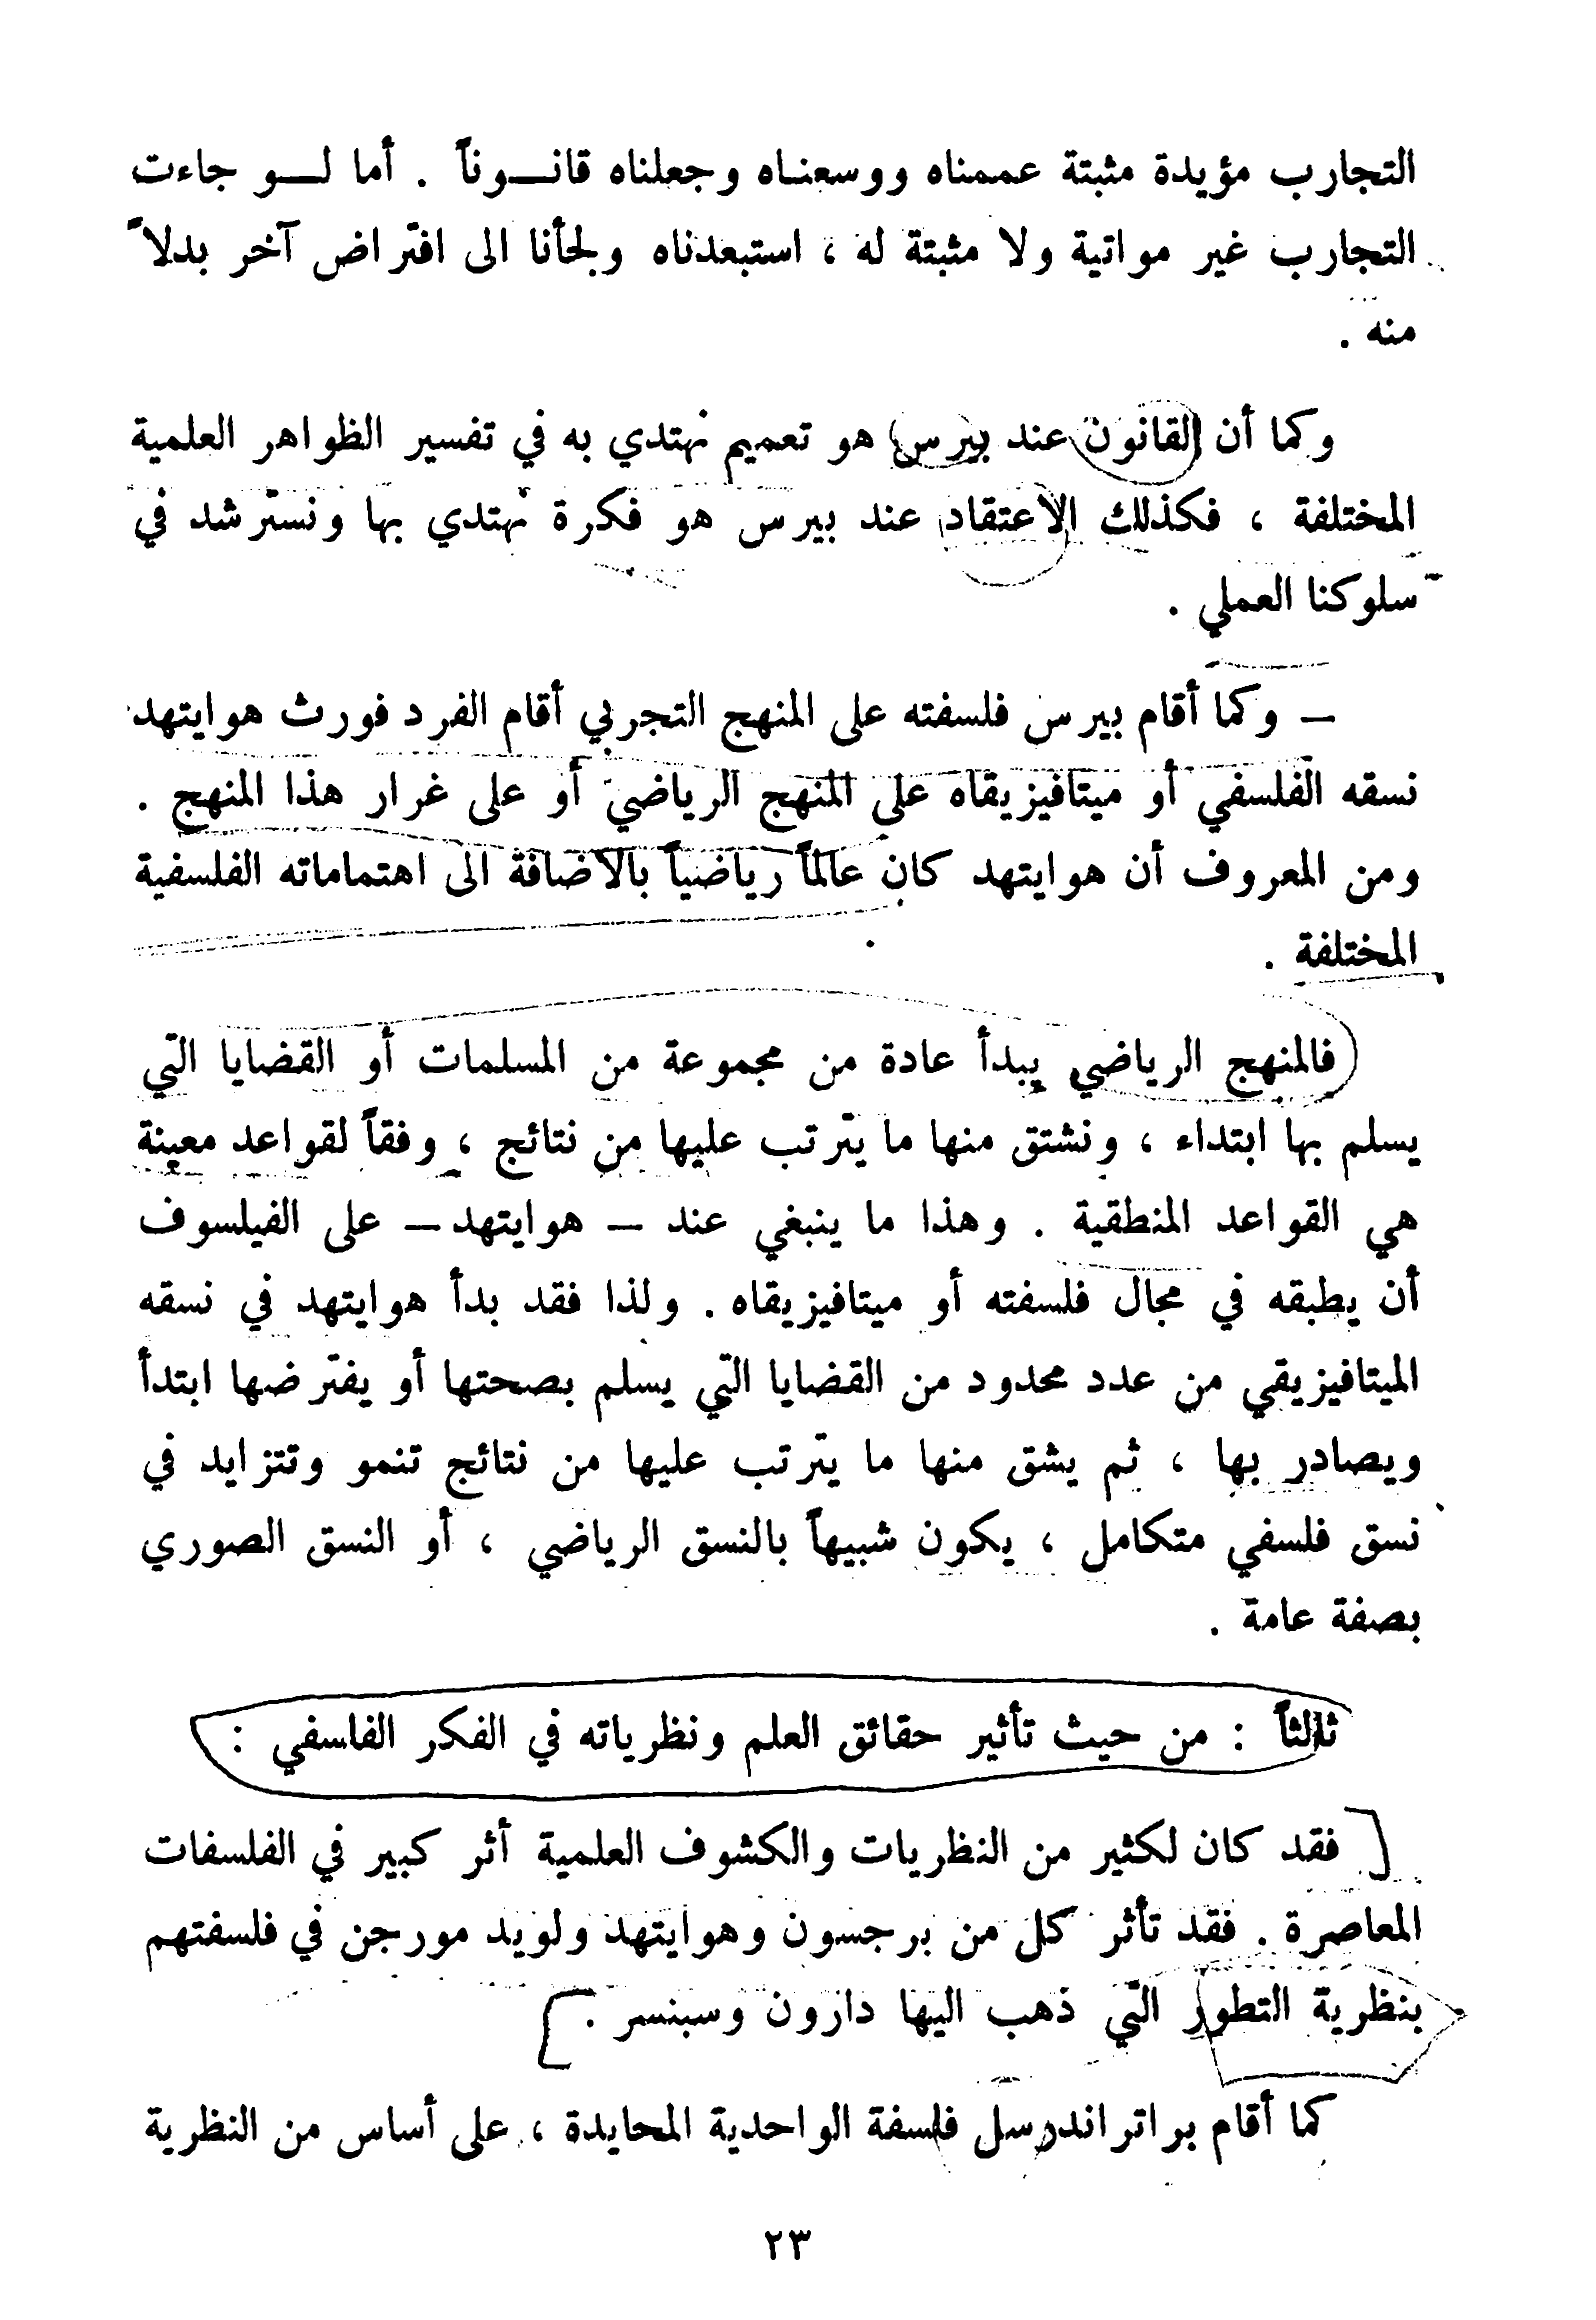 التجارب مؤيدة مثبتة عممناه ووسعناه وجعلناه قانوناً . أما لو جاءت
التجارب غير مواتية ولا مثبتة له ، استبعدناه ولجأنا الى افتراض آخر بدلاً
منه .
وكما أن القانون عند بيرس هو تعميم نهتدي به في تفسير الظواهر العلمية
المختلفة ، فكذلك الاعتقاد عند بيرس هو فكرة نهتدي بها ونسترشد في
سلوكنا العملي .
– وكما أقام بيرس فلسفته على المنهج التجربي أقام الفرد فورث هوايتهد
نسقه الفلسفي أو ميتافيزيقاه على المنهج الرياضي أو على غرار هذا المنهج .
ومن المعروف أن هوايتهد كان عالماً رياضياً بالاضافة الى اهتماماته الفلسفية
المختلفة .
فالمنهج الرياضي يبدأ عادة من مجموعة من المسلمات أو القضايا التي
يسلم بها ابتداء ، ونشتق منها ما يترتب عليها من نتائج ، وفقاً لقواعد معينة
هي القواعد المنطقية . وهذا ما ينبغي عند – هوايتهد – على الفيلسوف
أن يطبقه في مجال فلسفته أو ميتافيزيقاه . ولذا فقد بدأ هوايتهد في نسقه
الميتافيزيقي من عدد محدود من القضايا التي يسلم بصحتها أو يفترضها ابتدأ
ويصادر بها ، ثم يشق منها ما يترتب عليها من نتائج تنمو وتتزايد في
نسق فلسفي متكامل ، يكون شبيهاً بالنسق الرياضي ، أو النسق الصوري
بصفة عامة .
ثالثاً : من حيث تأثير حقائق العلم ونظرياته في الفكر الفلسفي :
فقد كان لكثير من النظريات والكشوف العلمية أثر كبير في الفلسفات
المعاصرة . فقد تأثر كل من برجسون وهوايتهد ولويد مورجن في فلسفتهم
بنظرية التطور التي ذهب اليها دارون وسبنسر .
كما أقام براتراندرسل فلسفة الواحدية المحايدة ، على أساس من النظرية
٢٣